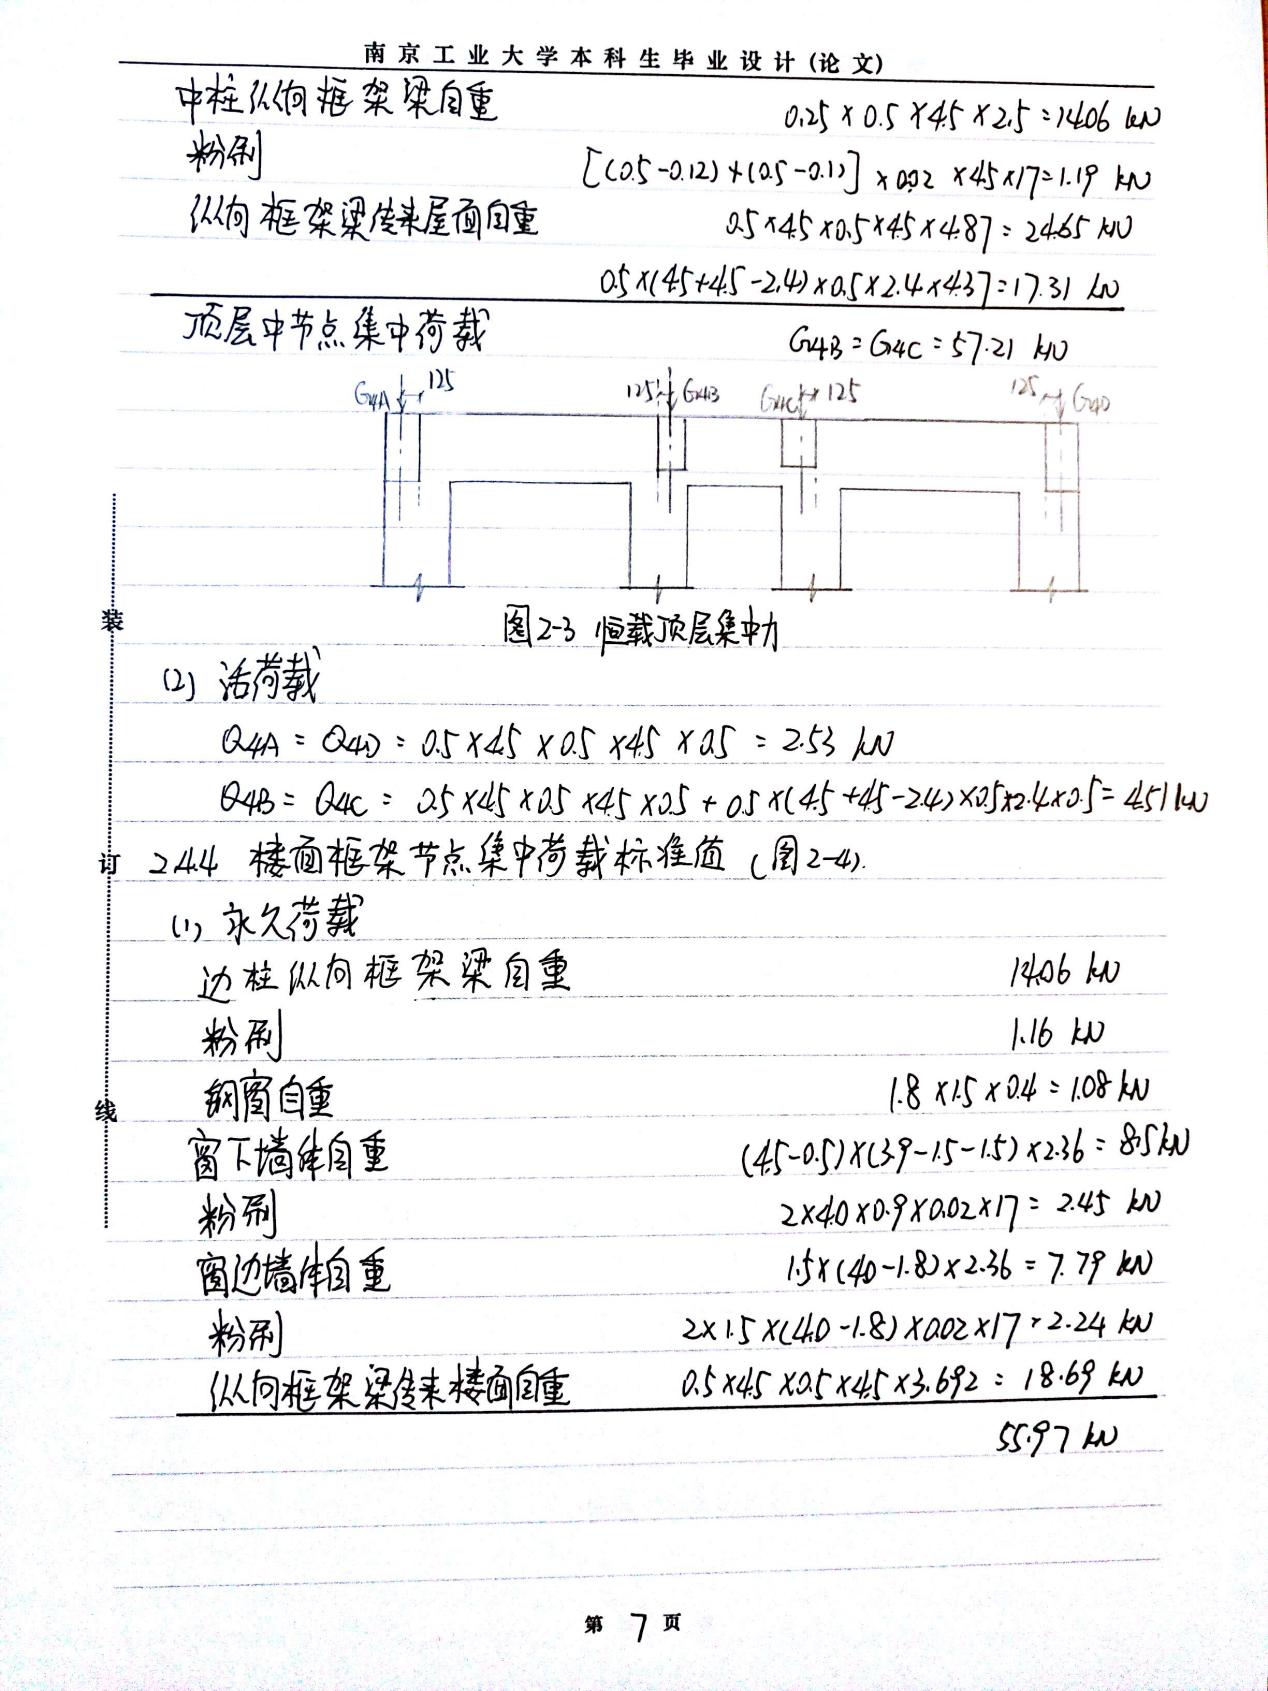 南京工业大学本科生毕业设计(论文)
中柱纵向框架梁自重 0.25×0.5×4.5×2.5=14.06 kN
粉刷 [(0.5-0.12)+(0.5-0.1)]×0.02×4.5×17=1.19 kN
纵向框架梁传来屋面自重 0.5×4.5×0.5×4.5×4.87=24.65 kN
0.5×(4.5+4.5-2.4)×0.5×2.4×4.37=17.31 kN
顶层中节点集中荷载 G4B=G4C=57.21 kN
G4A 125 125 G4B G4C 125 125 G4D
图2-3 恒载顶层集中力
(2) 活荷载
Q4A=Q4D=0.5×4.5×0.5×4.5×0.5=2.53 kN
Q4B=Q4C=0.5×4.5×0.5×4.5×0.5+0.5×(4.5+4.5-2.4)×0.5×2.4×0.5=4.51kN
装
订
线
2.4.4 楼面框架节点集中荷载标准值(图2-4).
(1) 永久荷载
边柱纵向框架梁自重 14.06 kN
粉刷 1.16 kN
钢窗自重 1.8×1.5×0.4=1.08 kN
窗下墙体自重 (4.5-0.5)×(3.9-1.5-1.5)×2.36=8.5kN
粉刷 2×4.0×0.9×0.02×17=2.45 kN
窗边墙体自重 1.5×(4.0-1.8)×2.36=7.79 kN
粉刷 2×1.5×(4.0-1.8)×0.02×17=2.24 kN
纵向框架梁传来楼面自重 0.5×4.5×0.5×4.5×3.692=18.69 kN
55.97 kN
第 7 页